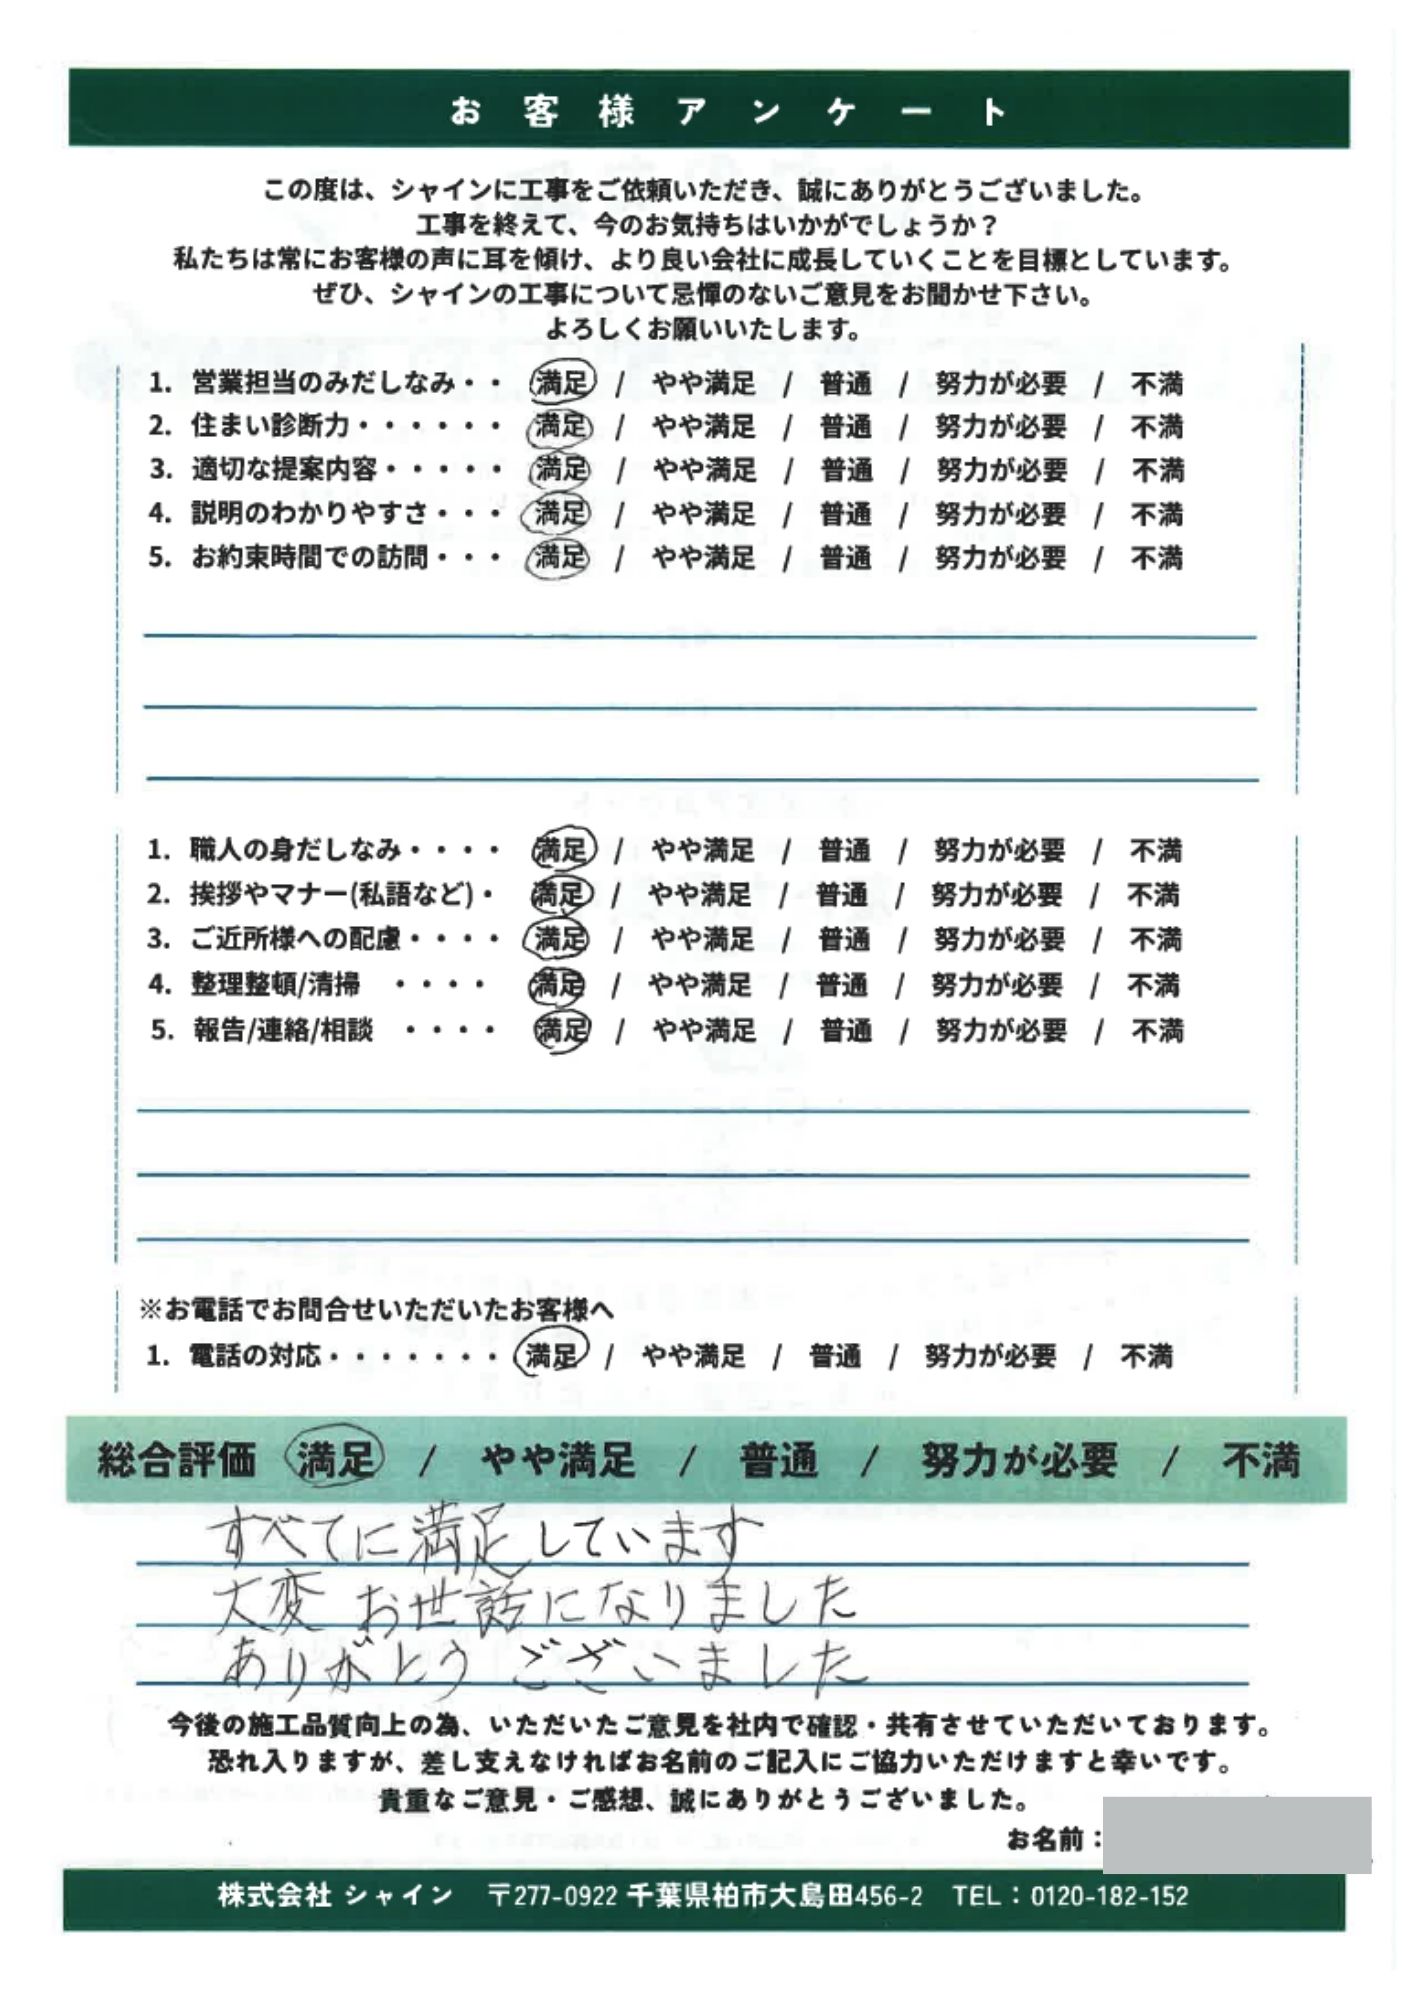 お客様アンケート
この度は、シャインに工事をご依頼いただき、誠にありがとうございました。
工事を終えて、今のお気持ちはいかがでしょうか？
私たちは常にお客様の声に耳を傾け、より良い会社に成長していくことを目標としています。
ぜひ、シャインの工事について忌憚のないご意見をお聞かせ下さい。
よろしくお願いいたします。
1. 営業担当のみだしなみ・・ 満足 / やや満足 / 普通 / 努力が必要 / 不満
2. 住まい診断力・・・・・・ 満足 / やや満足 / 普通 / 努力が必要 / 不満
3. 適切な提案内容・・・・・ 満足 / やや満足 / 普通 / 努力が必要 / 不満
4. 説明のわかりやすさ・・・ 満足 / やや満足 / 普通 / 努力が必要 / 不満
5. お約束時間での訪問・・・ 満足 / やや満足 / 普通 / 努力が必要 / 不満
1. 職人の身だしなみ・・・・ 満足 / やや満足 / 普通 / 努力が必要 / 不満
2. 挨拶やマナー(私語など)・ 満足 / やや満足 / 普通 / 努力が必要 / 不満
3. ご近所様への配慮・・・・ 満足 / やや満足 / 普通 / 努力が必要 / 不満
4. 整理整頓/清掃 ・・・・ 満足 / やや満足 / 普通 / 努力が必要 / 不満
5. 報告/連絡/相談 ・・・・ 満足 / やや満足 / 普通 / 努力が必要 / 不満
※お電話でお問合せいただいたお客様へ
1. 電話の対応・・・・・・・ 満足 / やや満足 / 普通 / 努力が必要 / 不満
総合評価 満足 / やや満足 / 普通 / 努力が必要 / 不満
すべてに満足しています
大変 お世話になりました
ありがとう ございました
今後の施工品質向上の為、いただいたご意見を社内で確認・共有させていただいております。
恐れ入りますが、差し支えなければお名前のご記入にご協力いただけますと幸いです。
貴重なご意見・ご感想、誠にありがとうございました。
お名前：
株式会社 シャイン 〒277-0922 千葉県柏市大島田456-2 TEL：0120-182-152